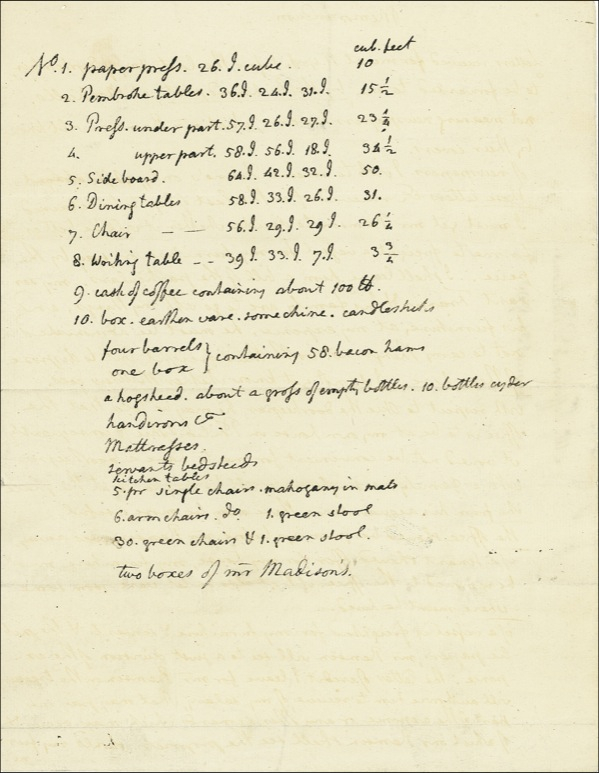 cub. feet
No. 1. paper press. 26. I. cube. 10
2. Pembroke tables. 36. I. 24. I. 31. I. 15 1/2
3. Press. under part. 57. I. 26. I. 27. I. 23 1/4
4. upper part. 58. I. 56. I. 18. I. 34 1/2
5. Side board. 64. I. 42. I. 32. I. 50.
6. Dining tables 58. I. 33. I. 26. I. 31.
7. Chair — — 56. I. 29. I. 29. I. 26 1/4
8. Writing table - - 39 I. 33. I. 7. I. 3 3/4
9. cask of coffee containing about 100 ℔.
10. box. earthen ware. some chine. candlesticks
four barrels } containing 58. bacon hams
one box
a hogshead. about a gross of empty bottles. 10. bottles cyder
handirons &c.
Mattrasses.
servants bedsteads
kitchen tables
5. pr single chairs. mahogany in mats
6. arm chairs. do 1. green stool
30. green chairs & 1. green stool.
two boxes of mr Madison's.